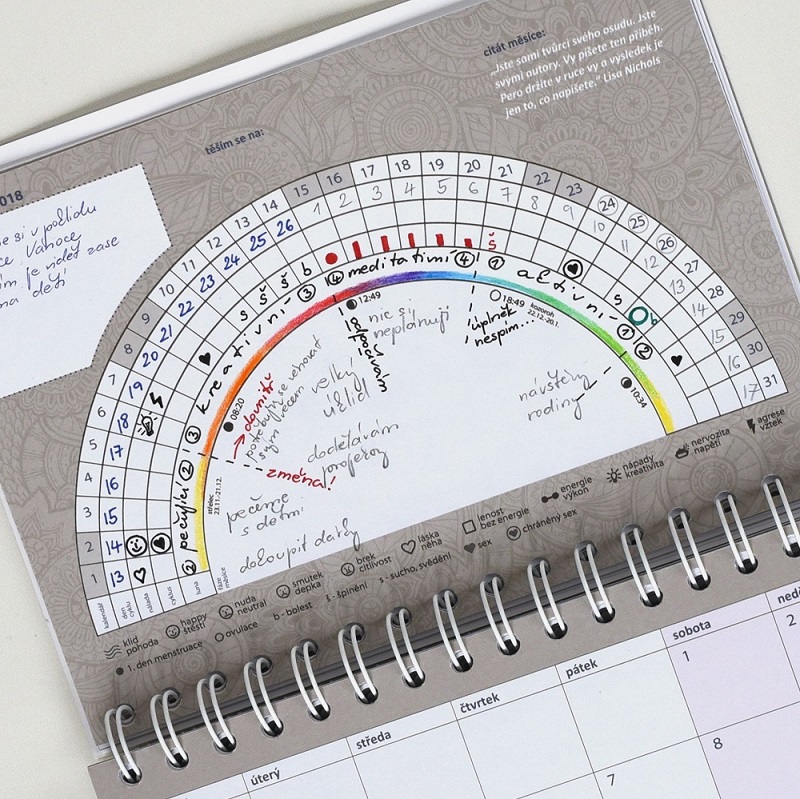 citát měsíce:
„Jste sami tvůrci svého osudu. Jste
svými autory. Vy píšete ten příběh.
Pero držíte v ruce vy a výsledek je
jen to, co napíšete.“ Lisa Nichols
těším se na:
2018
se si v poklidu
Vánoce
je vidět zase
na děti
1 2 3 4 5 6 7 8 9 10 11 12 13 14 15 16 17 18 19 20 21 22 23 24 25 26 27 28 29 30 31
13 14 15 16 17 18 19 20 21 22 23 24 25 26 1 2 3 4 5 6 7 8 9 10 11 12 13 14 15 16 17
s š š b š s b
② pečující ② ③ kreativní ③ ④ meditativní ④ ① aktivní ① ②
08:20
12:49
18:49
10:34
střelec
23.11.-21.12.
kozoroh
22.12.-20.1.
dovnitř
potřebuji se věnovat
svým věcem
odpočívám
nic si
neplánuji
úplněk
nespím...
velký
úklid
dodělávám
projekty
návštěvy
rodiny
změna!
pečeme
s dětmi
dokoupit dárky
kalendář
den
cyklu
nálada
cyklus
luna
fáze
měsíce
klid
pohoda
happy
štěstí
nuda
neutral
smutek
depka
brek
citlivost
láska
něha
lenost
bez energie
energie
výkon
nápady
kreativita
nervozita
napětí
agrese
vztek
1. den menstruace
ovulace
b - bolest
š - špinění
s - sucho, svědění
sex
chráněný sex
úterý
středa
čtvrtek
pátek
sobota
neděl
1
2
7
8